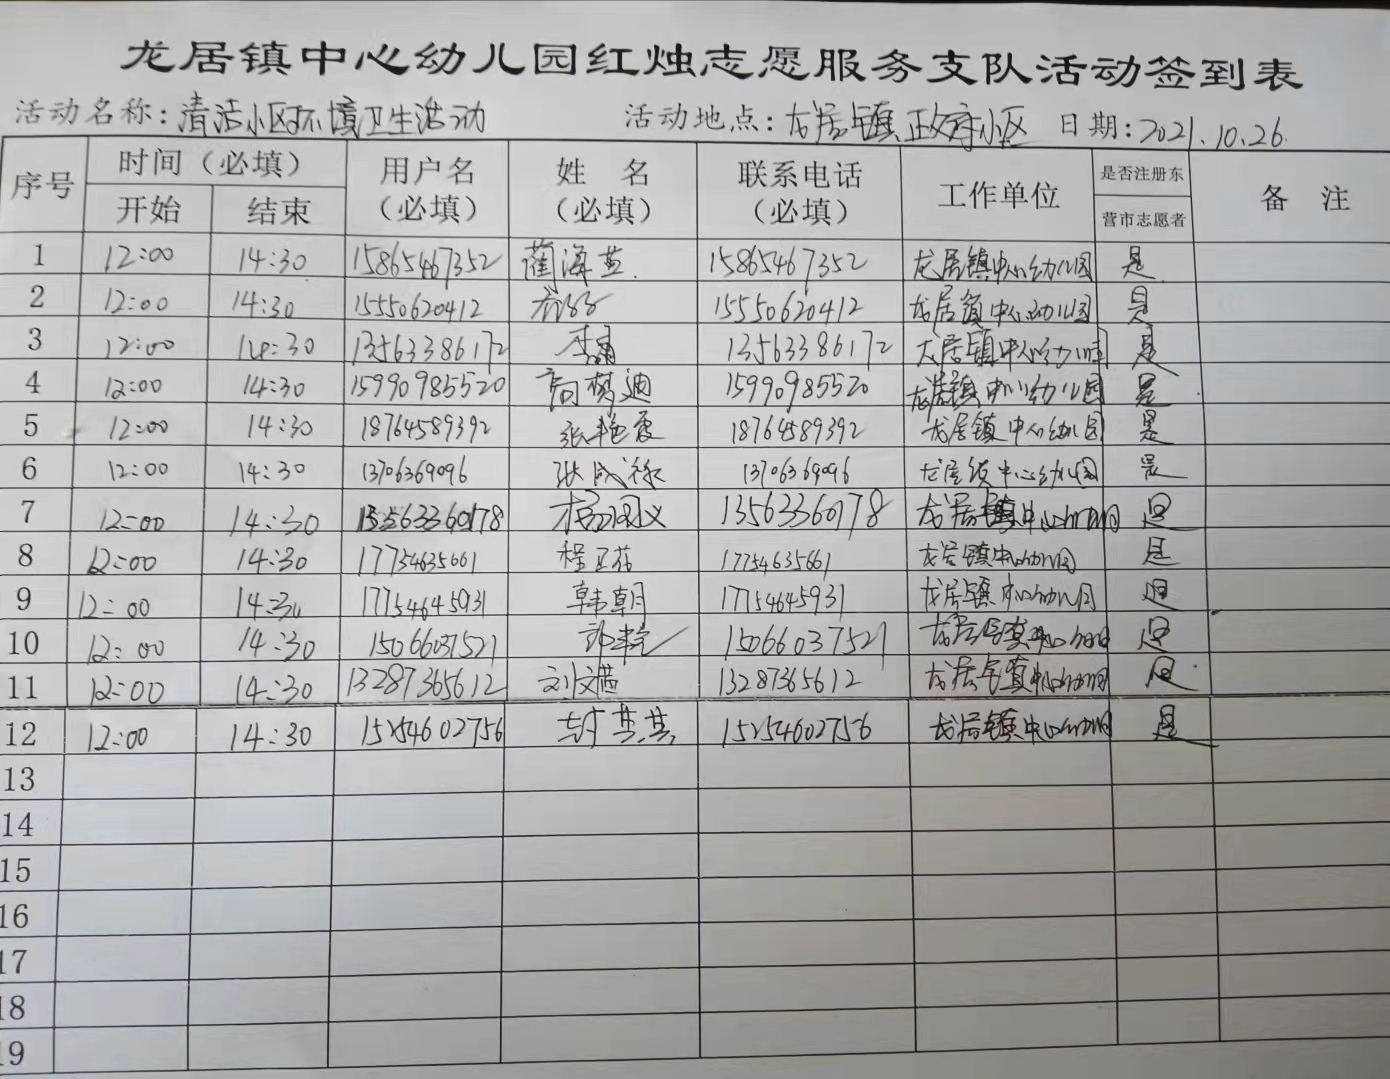 龙居镇中心幼儿园红烛志愿服务支队活动签到表
活动名称：清洁小区环境卫生活动 活动地点：龙居镇政府小区 日期：2021.10.26
序号 时间（必填） 用户名（必填） 姓 名（必填） 联系电话（必填） 工作单位 是否注册东营市志愿者 备 注
开始 结束
1 12:00 14:30 15865467352 蔺海燕 15865467352 龙居镇中心幼儿园 是
2 12:00 14:30 15550620412 15550620412 龙居镇中心幼儿园 是
3 12:00 14:30 13563386172 李 13563386172 龙居镇中心幼儿园 是
4 12:00 14:30 15990985520 高梦迪 15990985520 龙居镇中心幼儿园 是
5 12:00 14:30 18764589392 张艳霞 18764589392 龙居镇中心幼儿园 是
6 12:00 14:30 13706369096 张成 13706369096 龙居镇中心幼儿园 是
7 12:00 14:30 13563360178 13563360178 龙居镇中心幼儿园 是
8 12:00 14:30 17754635661 程卫花 17754635661 龙居镇中心幼儿园 是
9 12:00 14:30 17754645931 韩朝 17754645931 龙居镇中心幼儿园 是
10 12:00 14:30 15066037521 15066037521 龙居镇中心幼儿园 是
11 12:00 14:30 13287365612 刘文 13287365612 龙居镇中心幼儿园 是
12 12:00 14:30 15254602756 15254602756 龙居镇中心幼儿园 是
13
14
15
16
17
18
19